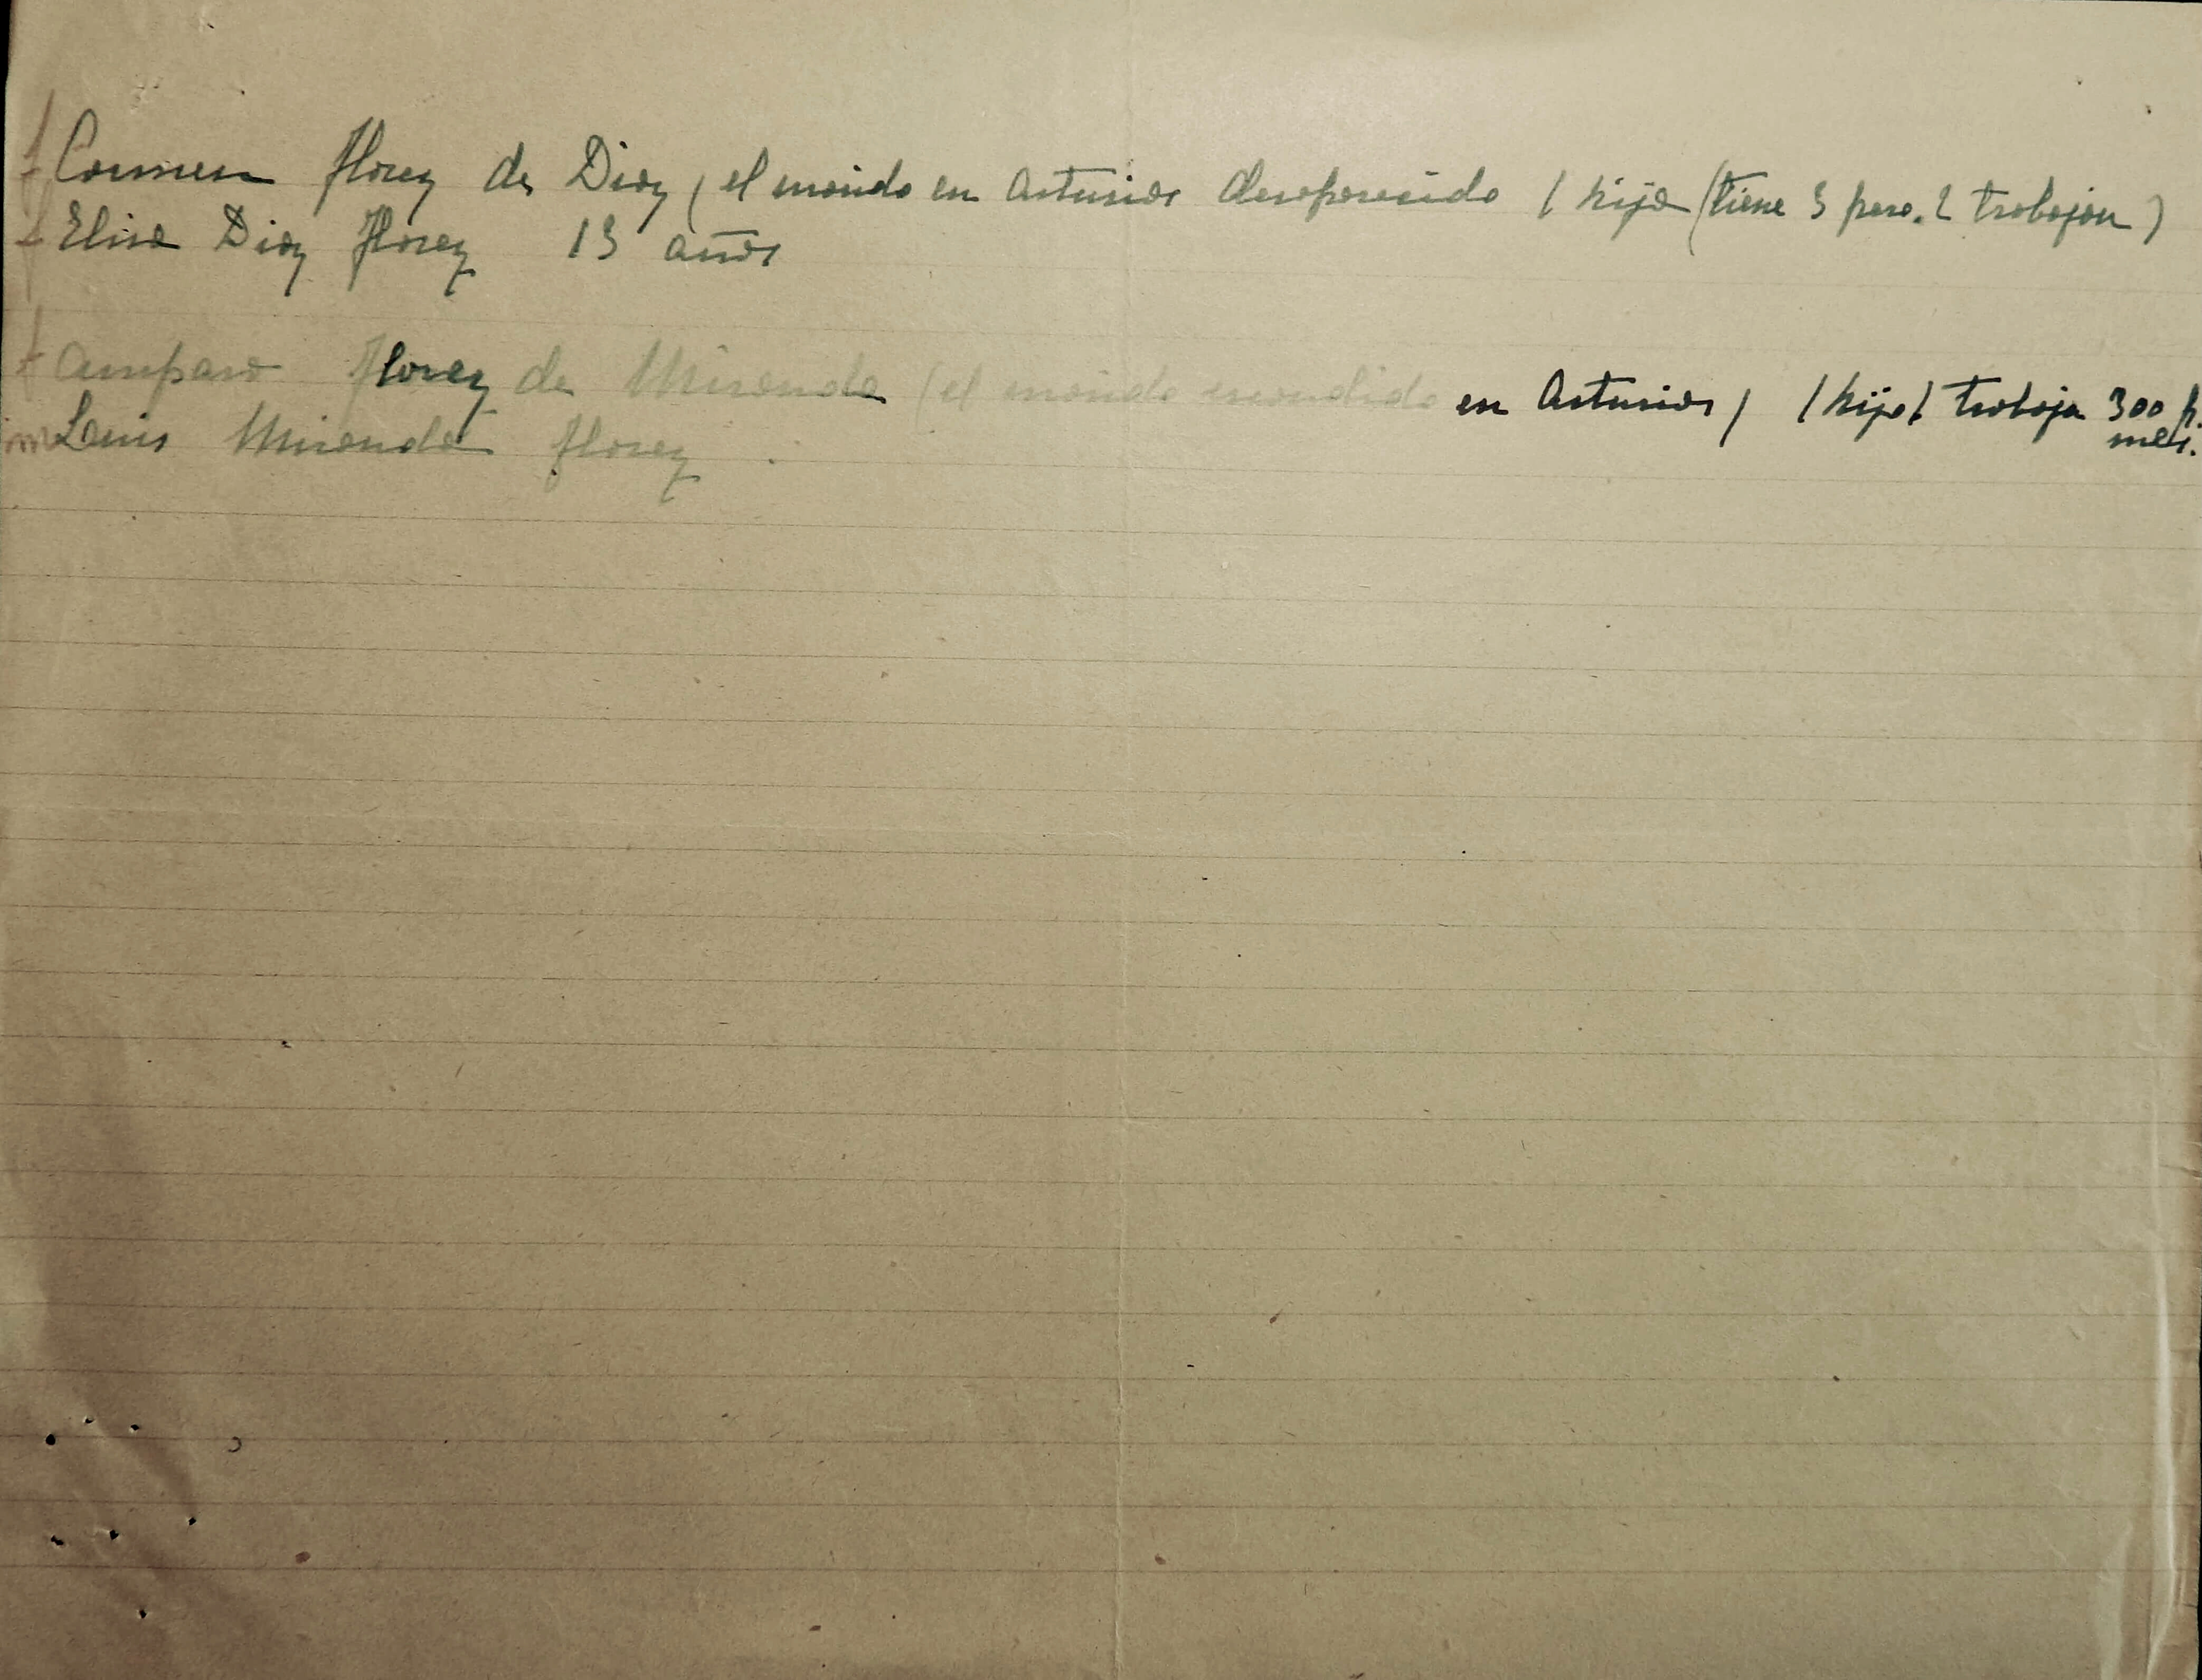 f Carmen Florez de Diaz (el marido en Asturias desaparecido 1 hija (tiene 3 pero. 2 trabajan)
f Elisa Diaz Florez 13 años
f Amparo Florez de Miranda (el marido escondido en Asturias) 1 hijo ( trabaja 300 p. mes.
Luis Miranda Florez